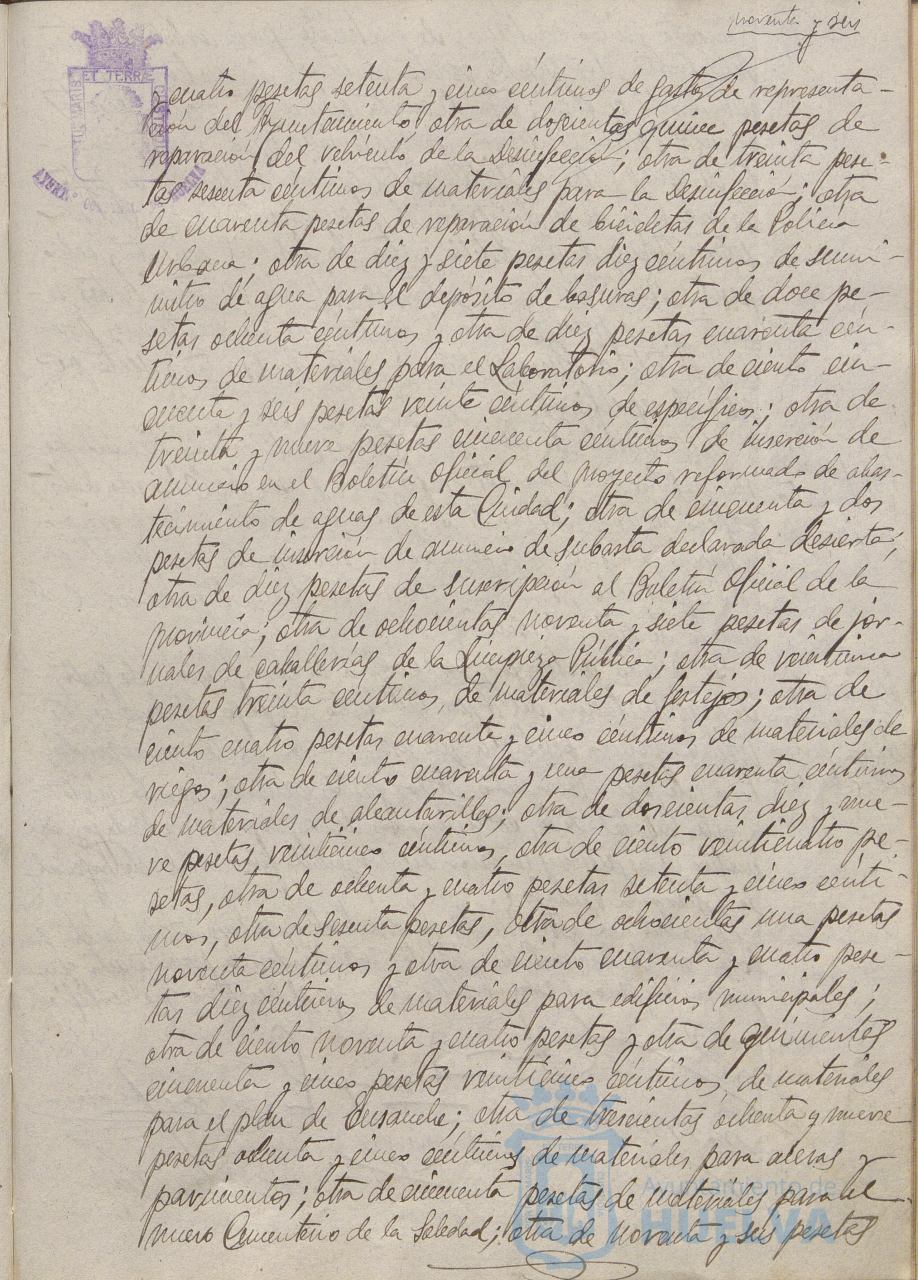 noventa y seis
y cuatro pesetas setenta y cinco céntimos de gastos de representa-
ción del Ayuntamiento, otra de doscientas quince pesetas de
reparación del vehículo de la Desinfección; otra de treinta pese-
tas sesenta céntimos de materiales para la Desinfección; otra
de cuarenta pesetas de reparación de bicicletas de la Policía
Urbana; otra de diez y siete pesetas diez céntimos de sumi-
nistro de agua para el depósito de basuras; otra de doce pe-
setas ochenta céntimos y otra de diez pesetas cuarenta cén-
timos de materiales para el Laboratorio; otra de ciento cin-
cuenta y seis pesetas veinte céntimos de específicos; otra de
treinta y nueve pesetas cincuenta céntimos de inserción de
anuncio en el Boletín Oficial del proyecto reformado de abas-
tecimiento de aguas de esta Ciudad; otra de cincuenta y dos
pesetas de inserción de anuncio de subasta declarada desierta;
otra de diez pesetas de suscripción al Boletín Oficial de la
provincia; otra de ochocientas noventa y siete pesetas de jor-
nales de caballerías de la Limpieza Pública; otra de veintiuna
pesetas treinta céntimos de materiales de festejos; otra de
ciento cuatro pesetas cuarenta y cinco céntimos de materiales de
riegos; otra de ciento cuarenta y una pesetas cuarenta céntimos
de materiales de alcantarillas; otra de doscientas diez y nue-
ve pesetas veinticinco céntimos, otra de ciento veinticuatro pe-
setas, otra de ochenta y cuatro pesetas setenta y cinco cénti-
mos, otra de sesenta pesetas, otra de ochocientas una pesetas
noventa céntimos y otra de ciento cuarenta y cuatro pese-
tas diez céntimos de materiales para edificios municipales;
otra de ciento noventa y cuatro pesetas y otra de quinientas
cincuenta y cinco pesetas veinticinco céntimos de materiales
para el plan de Ensanche; otra de trescientas ochenta y nueve
pesetas ochenta y cinco céntimos de materiales para aceras y
pavimentos; otra de cincuenta pesetas de materiales para el
nuevo Cementerio de la Soledad; otra de noventa y seis pesetas
ET TERRÆ
Ayuntamiento de
HUELVA